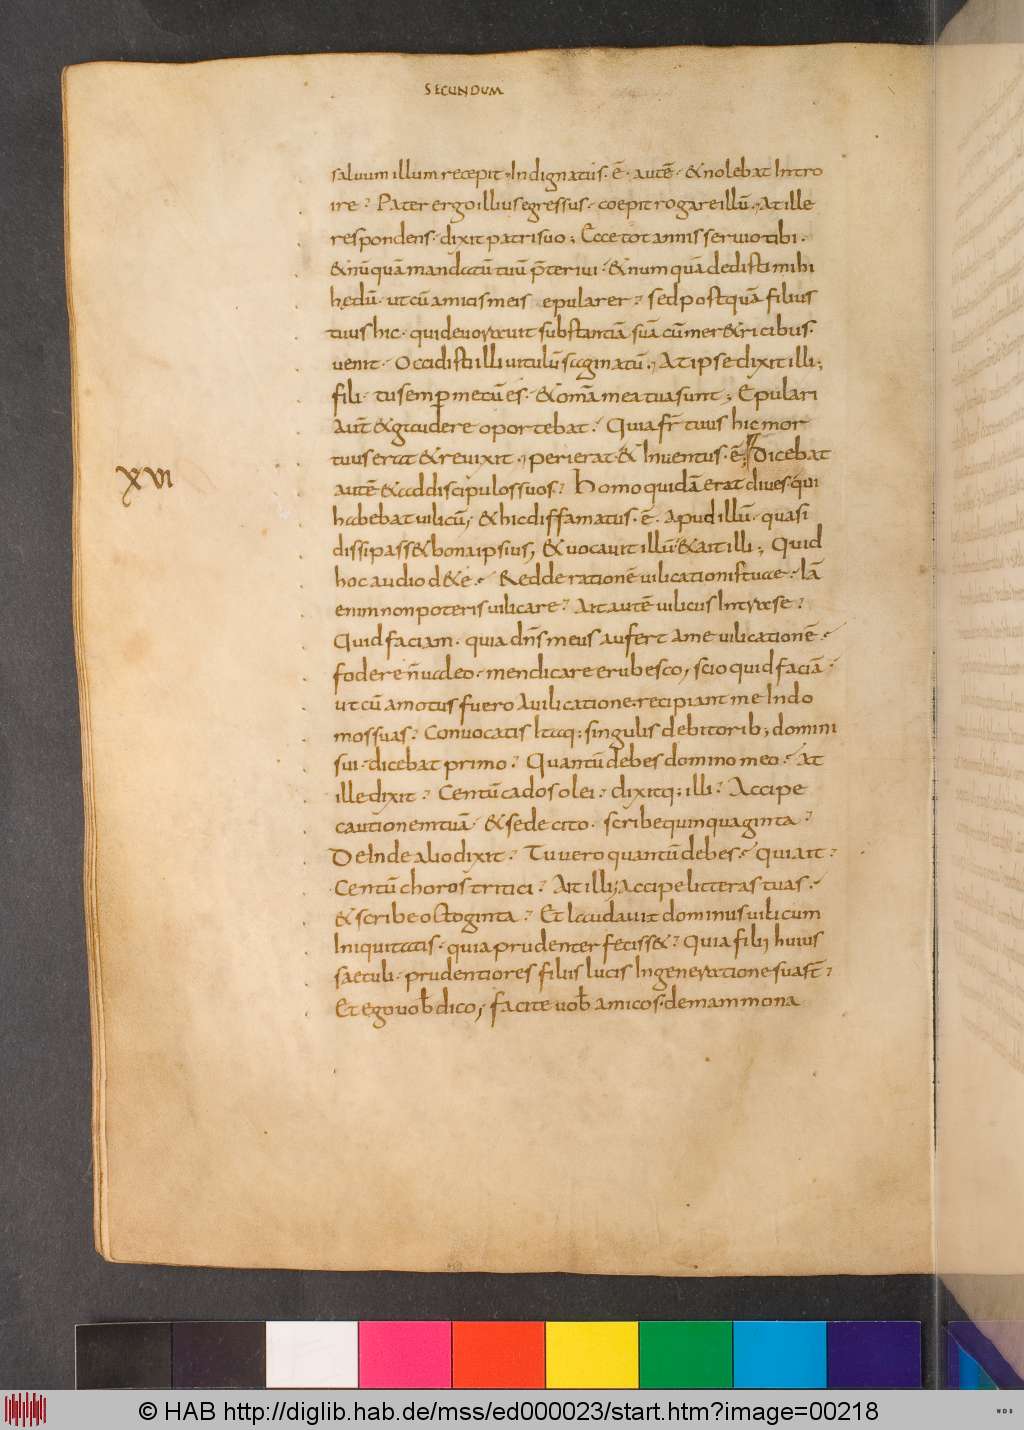 SECUNDUM
saluum illum recepit. Indignatus. ē. autē. & nolebat Intro
ire? Pater ergo illius egressus. coepit rogare illū. At ille
respondens. dixit patri suo; Ecce tot annis seruio tibi.
& nūquā mandatū tuū p̄teriui. & numquā dedisti mihi
hędū. ut cū amicis meis epularer? sed postquā filius
tuus hic. qui deuorauit substantiā suā cū meretricibus.
uenit. Occidisti illi uitulū saginatū. At ipse dixit illi;
fili. tu semper mecū es. & omā mea tua sunt; Epulari
Aut̄ & gaudere oportebat. Quia fr̄ tuus hic mor
tuus erat & reuixit. perierat & Inuentus. ē. Dicebat
XVI
autē & ad discipulos suos? Homo quidā erat diues. qui
habebat uilicū, & hic diffamatus. ē. Apud illū. quasi
dissipass& bona ipsius, & uocauit illū & ait illi; Quid
hoc audio de te. Redde rationē uilicationis tuae. Iā
enim non poteris uilicare? Ait autē uilicus Intra se?
Quid faciam. quia dn̄s meus aufert A me uilicationē.
fodere n̄ ualeo. mendicare erubesco, scio quid faciā.
ut cū amotus fuero A uilicatione. recipiant me In do
mos suas? Conuocatis Itaq: singulis debitorib; domini
sui. dicebat primo? Quantū debes domino meo. At
ille dixit? Centū cados olei? dixitq: illi? Accipe
cautionem tuā. & sede cito. scribe quinquaginta?
DeInde alio dixit? Tu uero quantū debes. Qui ait?
Centū choros tritici? Ait illi; Accipe litteras tuas.
& scribe octoginta? Et laudauit dominus uilicum
Iniquitatis. quia prudenter feciss&? Quia filii huius
saeculi. prudentiores filiis lucis In generatione sua st̄?
Et ego uob̄ dico, facite uob̄ amicos. de mammona
© HAB http://diglib.hab.de/mss/ed000023/start.htm?image=00218